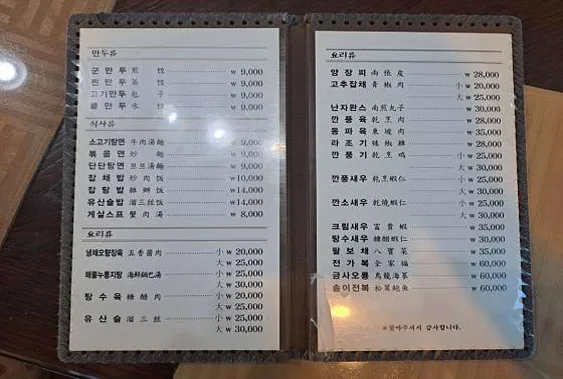 만두류
군만두 煎餃 ₩ 9,000
찐만두 蒸餃 ₩ 9,000
고기만두 包子 ₩ 9,000
물만두 水餃 ₩ 9,000
식사류
소고기탕면 牛肉湯麵 ₩ 9,000
볶음면 炒麵 ₩ 9,000
단단탕면 旦旦湯麵 ₩ 9,000
잡채밥 炒肉饭 ₩10,000
잡탕밥 雜拼饭 ₩14,000
유산슬밥 溜三丝饭 ₩14,000
게살스프 蟹肉湯 ₩ 8,000
요리류
냉채오향장육 五香醬肉 小 ₩ 20,000
大 ₩ 25,000
해물누룽지탕 海鮮鍋巴湯 小 ₩ 25,000
大 ₩ 30,000
탕수육 糖醋肉 小 ₩ 20,000
大 ₩ 25,000
유산슬 溜三丝 小 ₩ 25,000
大 ₩ 30,000
요리류
양장피 両張皮 ₩ 28,000
고추잡채 青椒肉 小 ₩ 20,000
大 ₩ 25,000
난자완스 南煎丸子 ₩ 30,000
깐풍육 乾烹肉 ₩ 28,000
동파육 東坡肉 ₩ 35,000
라조기 辣椒雞 ₩ 28,000
깐풍기 乾烹鸡 小 ₩ 25,000
大 ₩ 30,000
깐풍새우 乾烹蝦仁 小 ₩ 25,000
大 ₩ 30,000
깐소새우 乾燒蝦仁 小 ₩ 25,000
大 ₩ 30,000
크림새우 富貴蝦 ₩ 35,000
탕수새우 糖醋蝦仁 ₩ 30,000
팔보채 八寶菜 ₩ 35,000
전가복 全家福 ₩ 60,000
금사오룡 烏龍海蔘 ₩ 60,000
송이전복 松茸鲍魚 ₩ 60,000
※찾아주셔서 감사합니다.